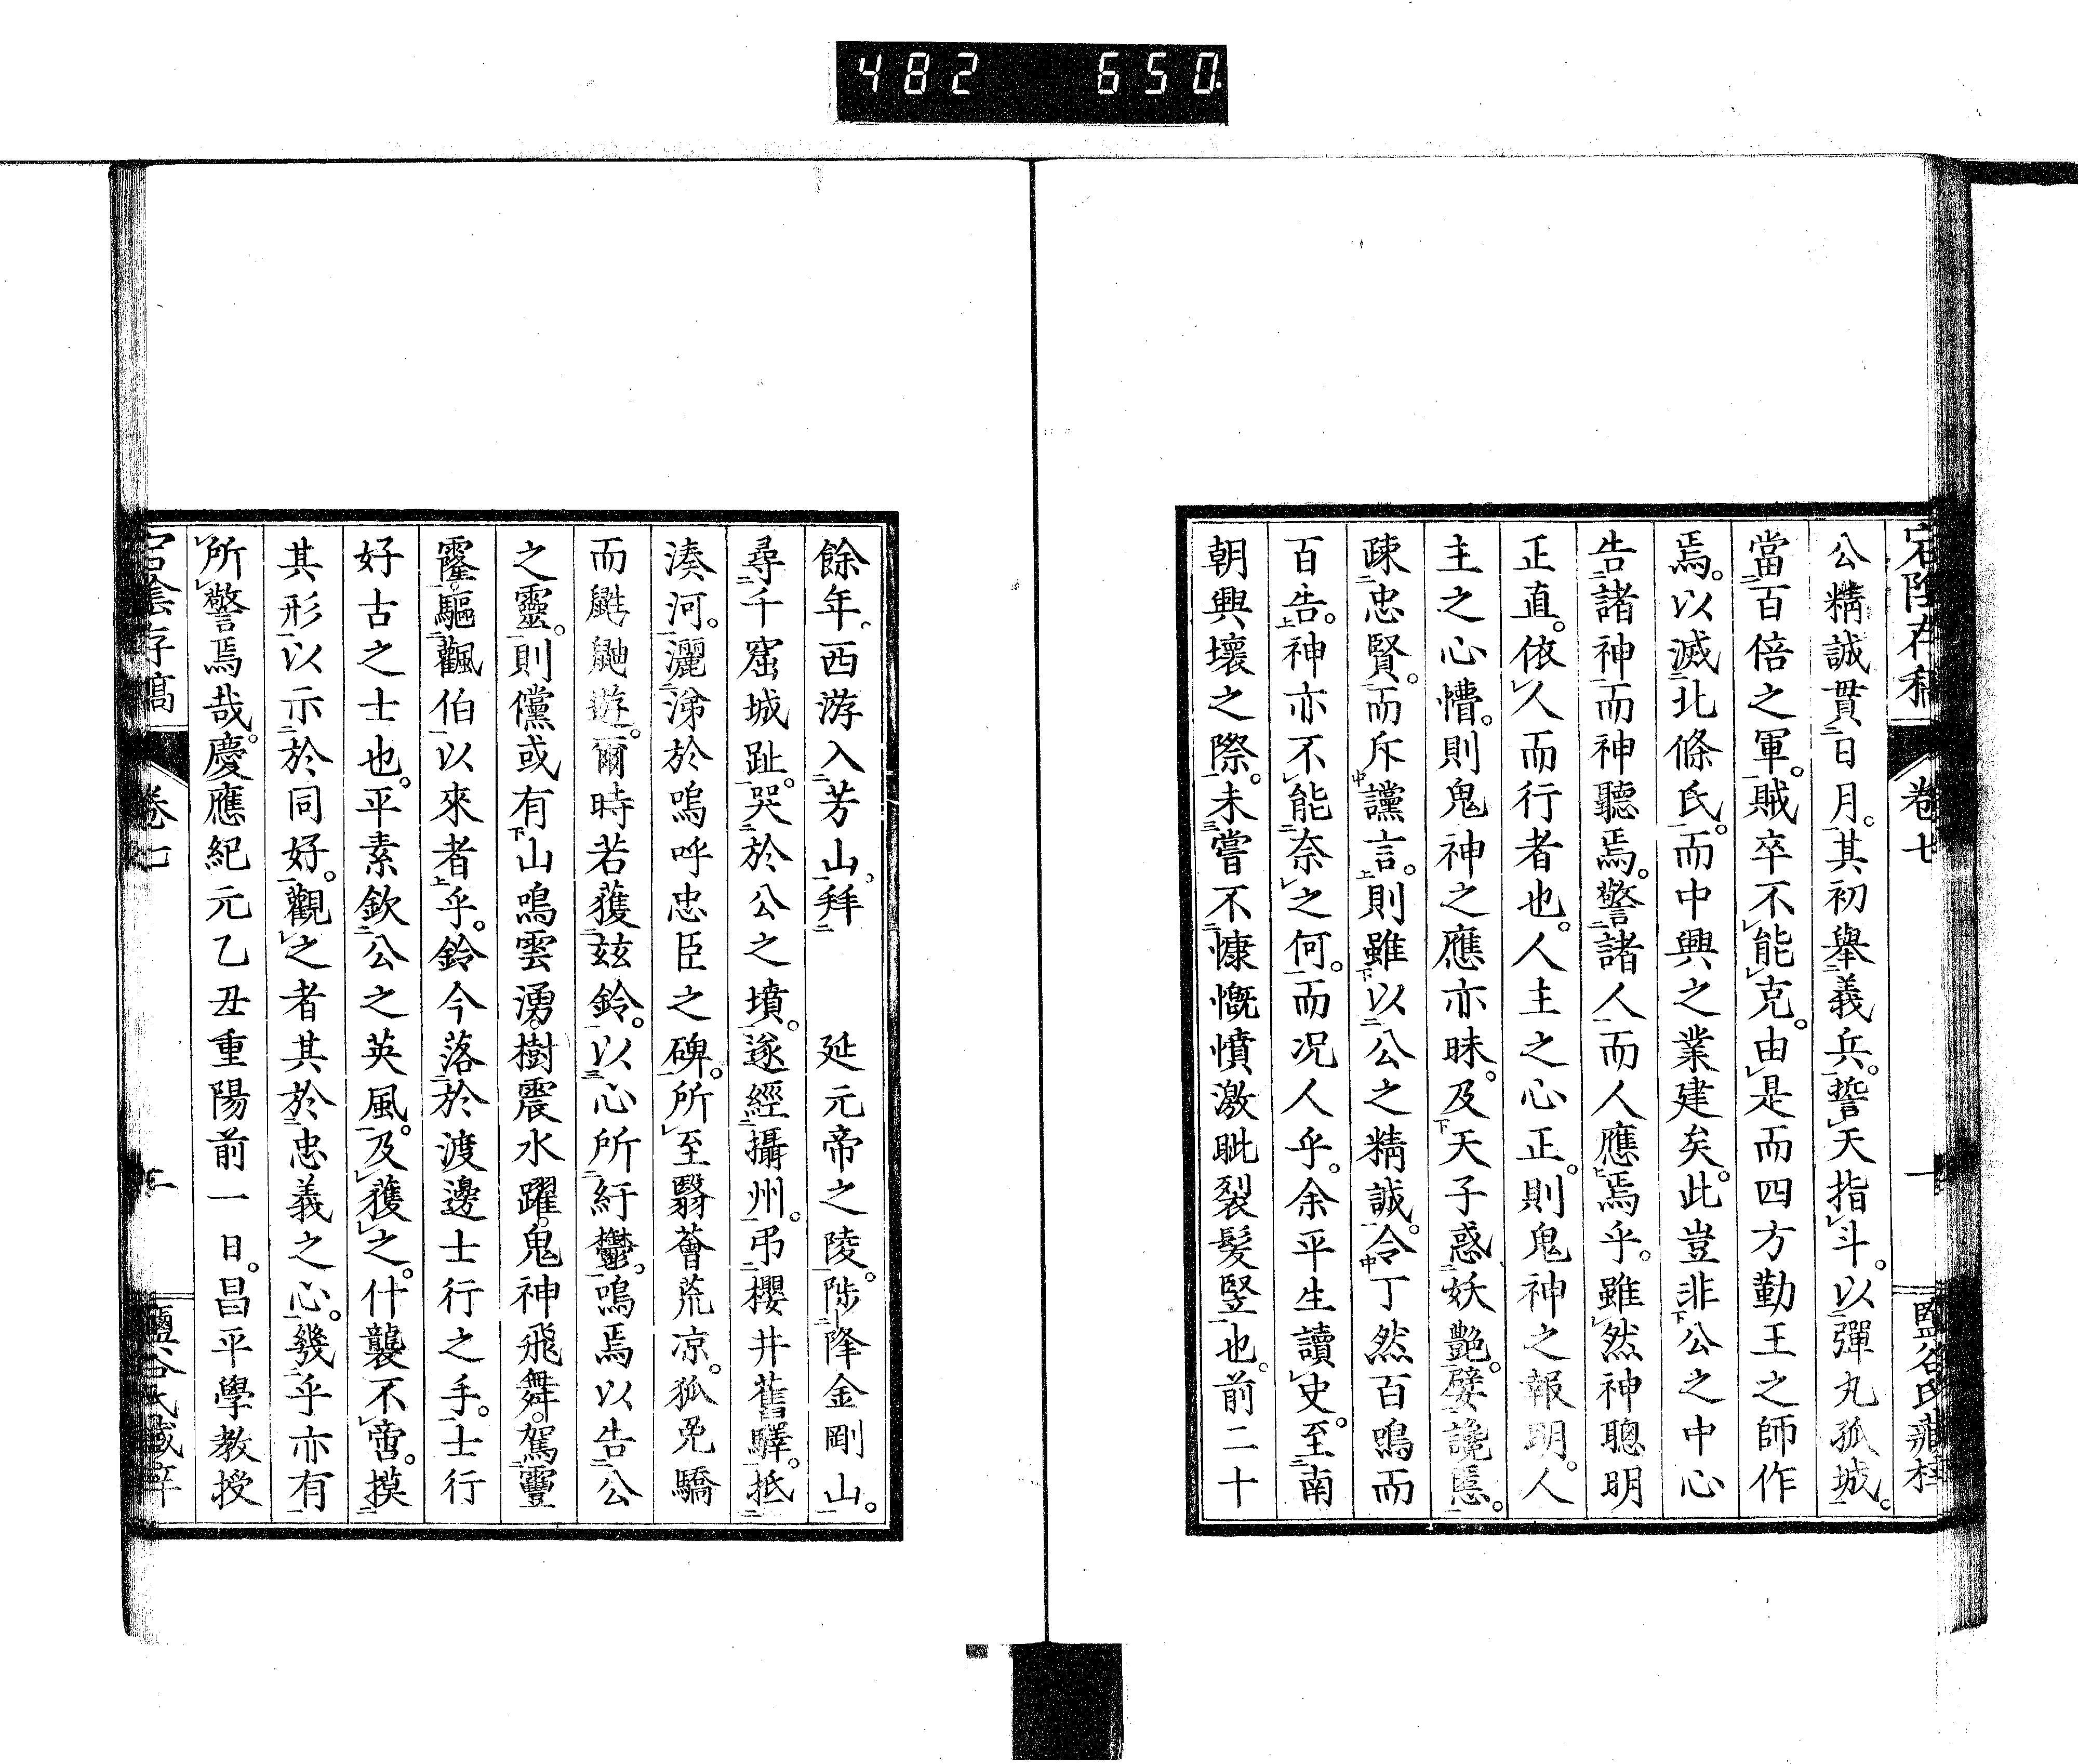 482 650
宕陰存稿 卷七 一 鹽谷氏藏梓
公精誠貫日月。其初舉義兵。誓天指斗。以彈丸孤城。
當百倍之軍。賊卒不能克。由是而四方勤王之師作
焉。以滅北條氏。而中興之業建矣。此豈非公之中心
告諸神而神聽焉。警諸人而人應焉乎。雖然神聰明
正直。依人而行者也。人主之心正。則鬼神之報明。人
主之心懵。則鬼神之應亦昧。及天子惑妖艷。嬖讒慝。
疎忠賢。而斥讜言。則雖以公之精誠。令丁然百鳴而
百告。神亦不能奈之何。而况人乎。余平生讀史。至南
朝興壞之際。未嘗不慷慨憤激眦裂髮竪也。前二十
餘年。西游入芳山。拜 延元帝之陵。陟降金剛山。
尋千窟城趾。哭於公之墳。遂經攝州。弔櫻井舊驛。抵
湊河。灑涕於嗚呼忠臣之碑。所至翳薈荒凉。狐兎驕
而鼪鼬遊。爾時若獲玆鈴。以心所紆鬱。鳴焉以告公
之靈。則儻或有山鳴雲湧。樹震水躍。鬼神飛舞。駕豐
霳驅飌伯以來者乎。鈴今落於渡邊士行之手。士行
好古之士也。平素欽公之英風。及獲之。什襲不啻。摸
其形以示於同好。觀之者其於忠義之心。幾乎亦有
所警焉哉。慶應紀元乙丑重陽前一日。昌平學教授
宕陰存稿 卷七 二 鹽谷氏藏梓